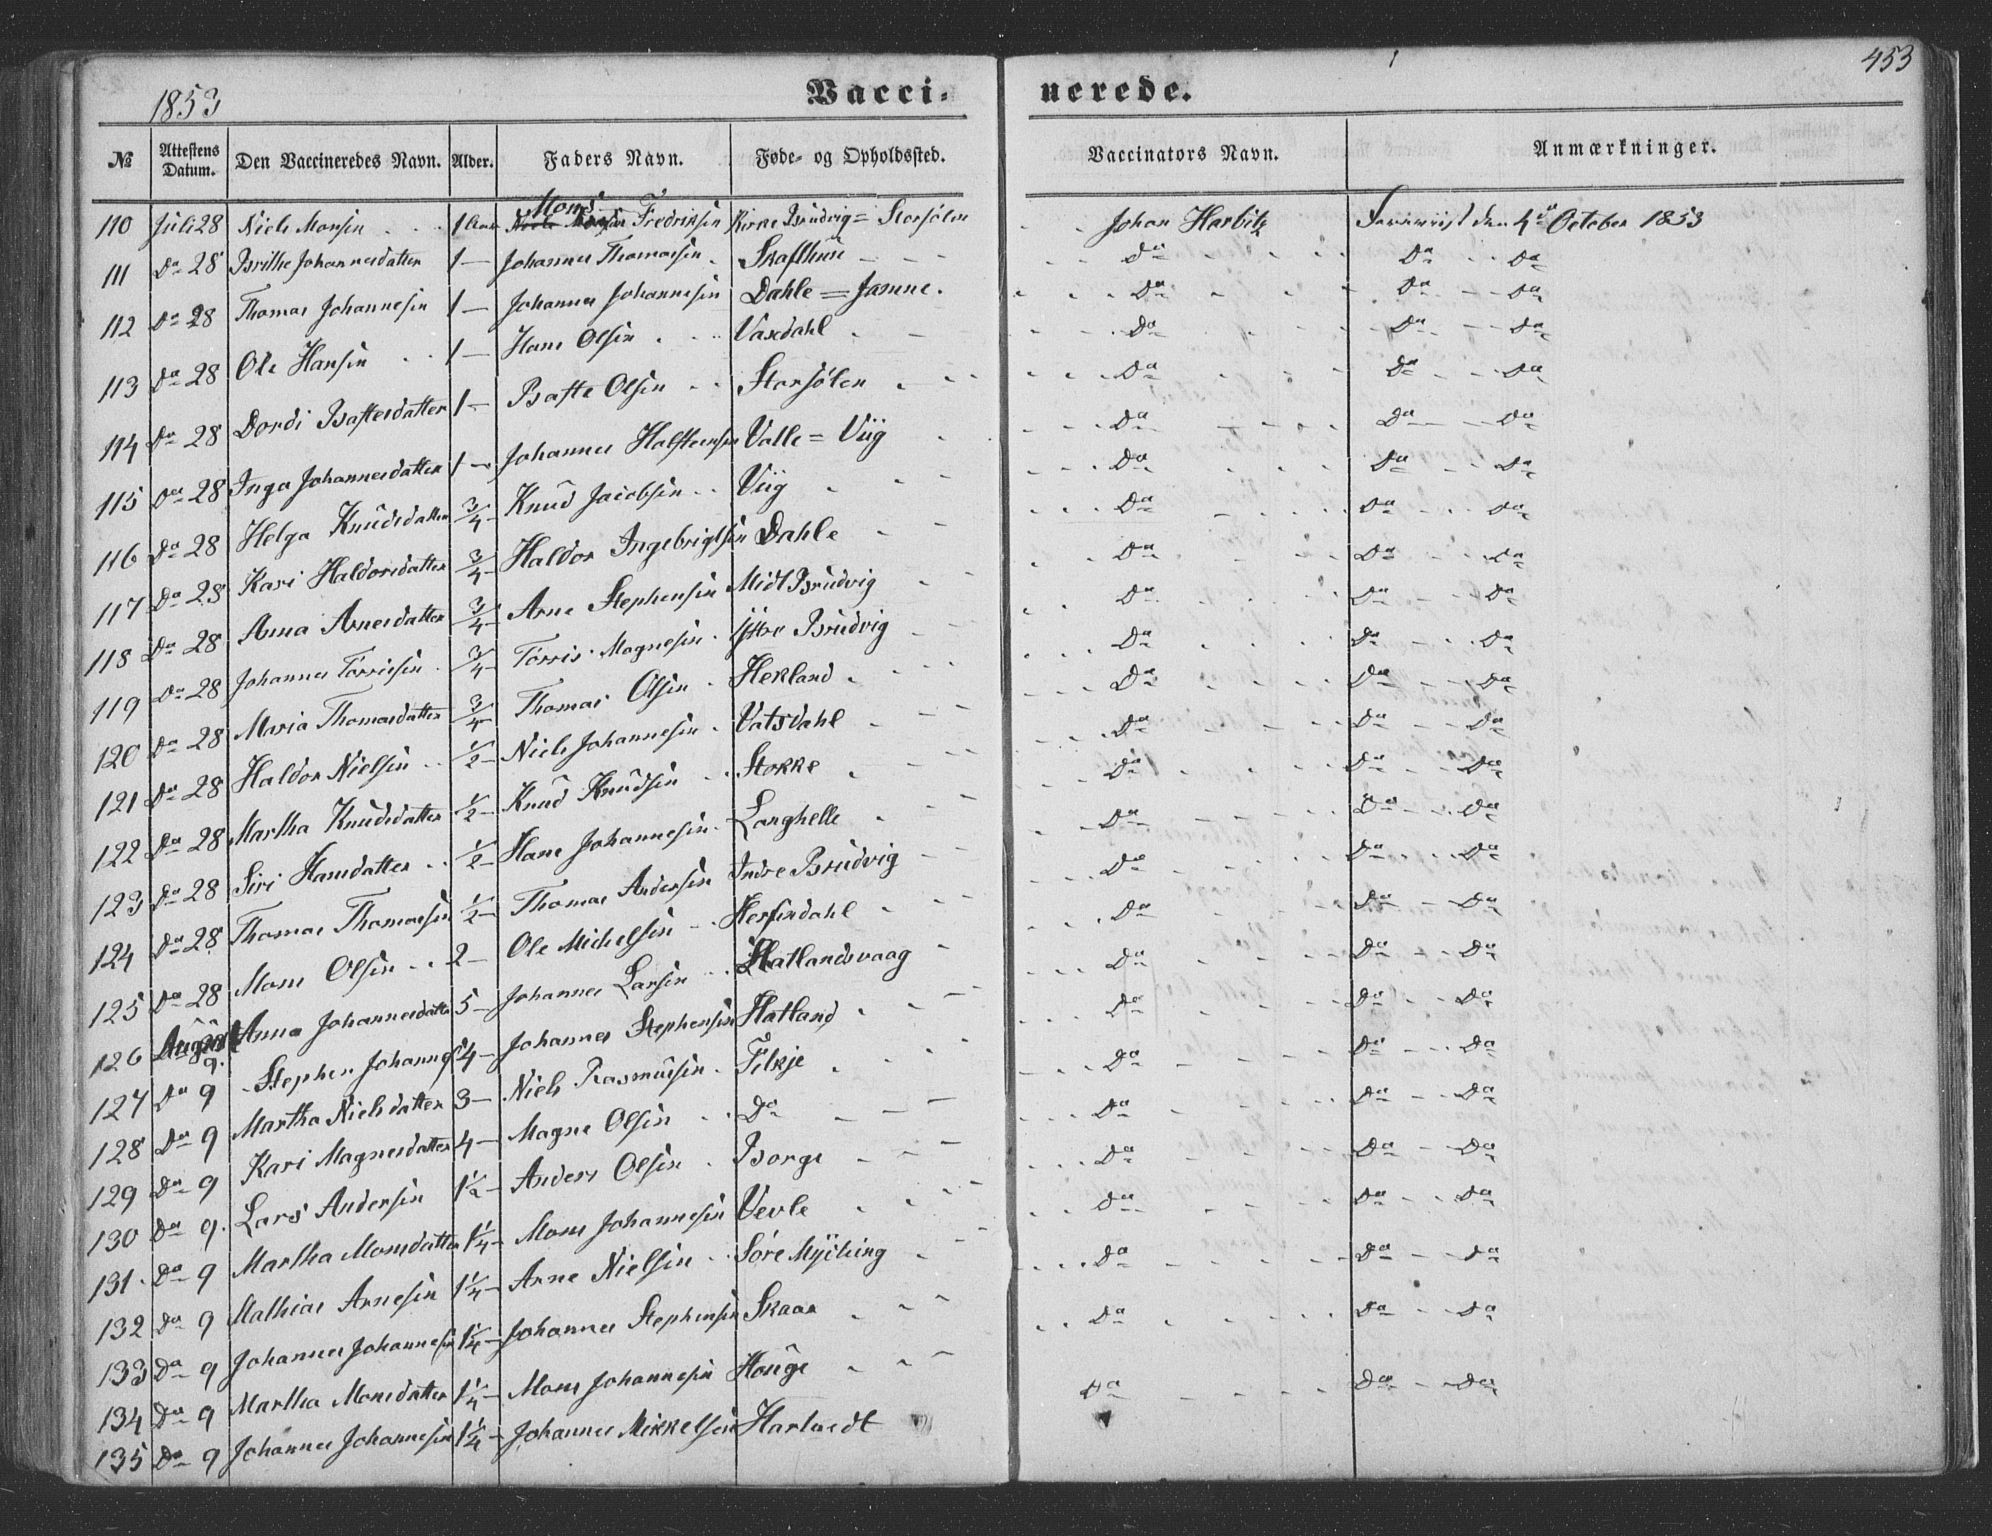 453
1853 Vacci- nerede.
№ Attestens Datum. Den Vaccineredes Navn. Alder. Faders Navn. Føde- og Opholdssted. Vaccinators Navn. Anmærkninger.
Mons
110 Juli 28 Niels Monsen 1 Fredriksen Kirke Brudvig = Storsølen Johan Harbitz den 4de October 1853
111 Do 28 Brithe Johannesdatter 1 — Johannes Thomassen Skafthun Do Do Do
112 Do 28 Thomas Johannesen 1 — Johannes Johannesen Dahle = Jamne. Do Do Do
113 Do 28 Ole Hansen 1 — Hans Olsen Vaxdahl Do Do Do
114 Do 28 Dordi Baftesdatter 1 — Bafte Olsen Storsølen Do Do Do
115 Do 28 Inga Johannesdatter 1 — Johannes Halsteensen Valle = Viig Do Do Do
116 Do 28 Helga Knudsdatter 3/4 — Knud Jacobsen Viig Do Do Do
117 Do 28 Kari Haldorsdatter 3/4 — Haldor Ingebrigtsen Dahle Do Do Do
118 Do 28 Anna Arnesdatter 3/4 — Arne Stephensen Midt Brudvig Do Do Do
119 Do 28 Johannes Torrisen 3/4 — Torris Magnesen Yttre Brudvig Do Do Do
120 Do 28 Maria Thomasdatter 3/4 — Thomas Olsen Hekland Do Do Do
121 Do 28 Haldor Nielsen 1/2 — Niels Johannesen Vatsdahl Do Do Do
122 Do 28 Martha Knudsdatter 1/2 — Knud Knudsen Stokke Do Do Do
123 Do 28 Siri Hansdatter 1/2 — Hans Johannesen Langhelle Do Do Do
124 Do 28 Thomas Thomassen 1/2 — Thomas Andersen Indre Brudvig Do Do Do
125 Do 28 Mons Olsen 2 — Ole Michelsen Herfindahl Do Do Do
126 August 9. Anna Johannesdatter 5 — Johannes Larsen Hatlandsvaag Do Do Do
127 Do 9 Stephen Johannesen 4 — Johannes Stephensen Hatland Do Do Do
128 Do 9 Martha Nielsdatter 3 — Niels Rasmusen Tikje Do Do Do
129 Do 9 Kari Magnesdatter 4 — Magne Olsen Do Do Do Do
130 Do 9. Lars Andersen 1 1/2 — Anders Olsen Borge Do Do Do
131 Do 9 Martha Monsdatter 1 1/4 — Mons Johannesen Vevle Do Do Do
132 Do 9 Mathias Arnesen 1 1/4 — Arne Nielsen Søre Myching Do Do Do
133 Do 9 Johannes Johannesen 1 1/4 — Johannes Stephensen Skaar Do Do Do
134 Do 9 Martha Monsdatter 1 1/4 — Mons Johannesen Houge Do Do Do
135 Do 9 Johannes Johannesen 1 1/4 — Johannes Mikkelsen Hartvedt